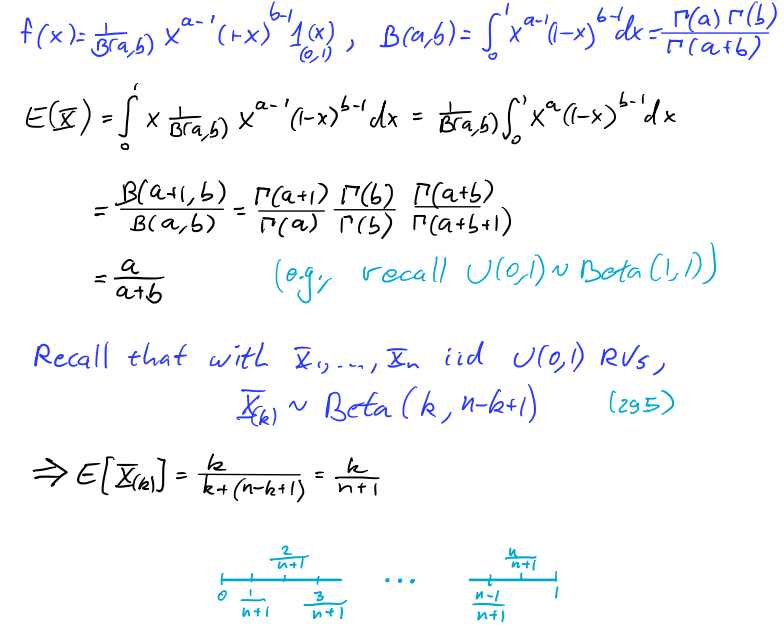 f(x) = 1/B(a,b) x^{a-1} (1-x)^{b-1} 1_{(0,1)}(x), B(a,b) = ∫_0^1 x^{a-1}(1-x)^{b-1}dx = Γ(a)Γ(b)/Γ(a+b)
E(X) = ∫_0^1 x 1/B(a,b) x^{a-1}(1-x)^{b-1}dx = 1/B(a,b) ∫_0^1 x^a(1-x)^{b-1}dx
= B(a+1,b)/B(a,b) = Γ(a+1)/Γ(a) Γ(b)/Γ(b) Γ(a+b)/Γ(a+b+1)
= a/(a+b) (e.g., recall U(0,1) ~ Beta(1,1))
Recall that with X_1,...,X_n iid U(0,1) RVs,
X_(k) ~ Beta(k, n-k+1) (295)
⇒ E[X_(k)] = k/(k+(n-k+1)) = k/(n+1)
2/(n+1) ... n/(n+1)
0 1/(n+1) 3/(n+1) (n-1)/(n+1) 1